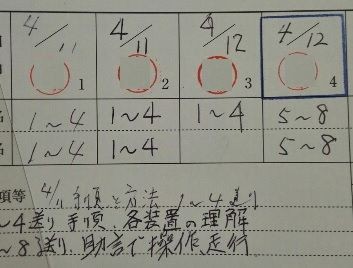 4/11 4/11 4/12 4/12
1 2 3 4
1~4 1~4 1~4 5~8
1~4 1~4 5~8
項等 4/11 手順と方法 1~4送り
~4送り 手順、各装置の理解
~8送り、助言で操作走行